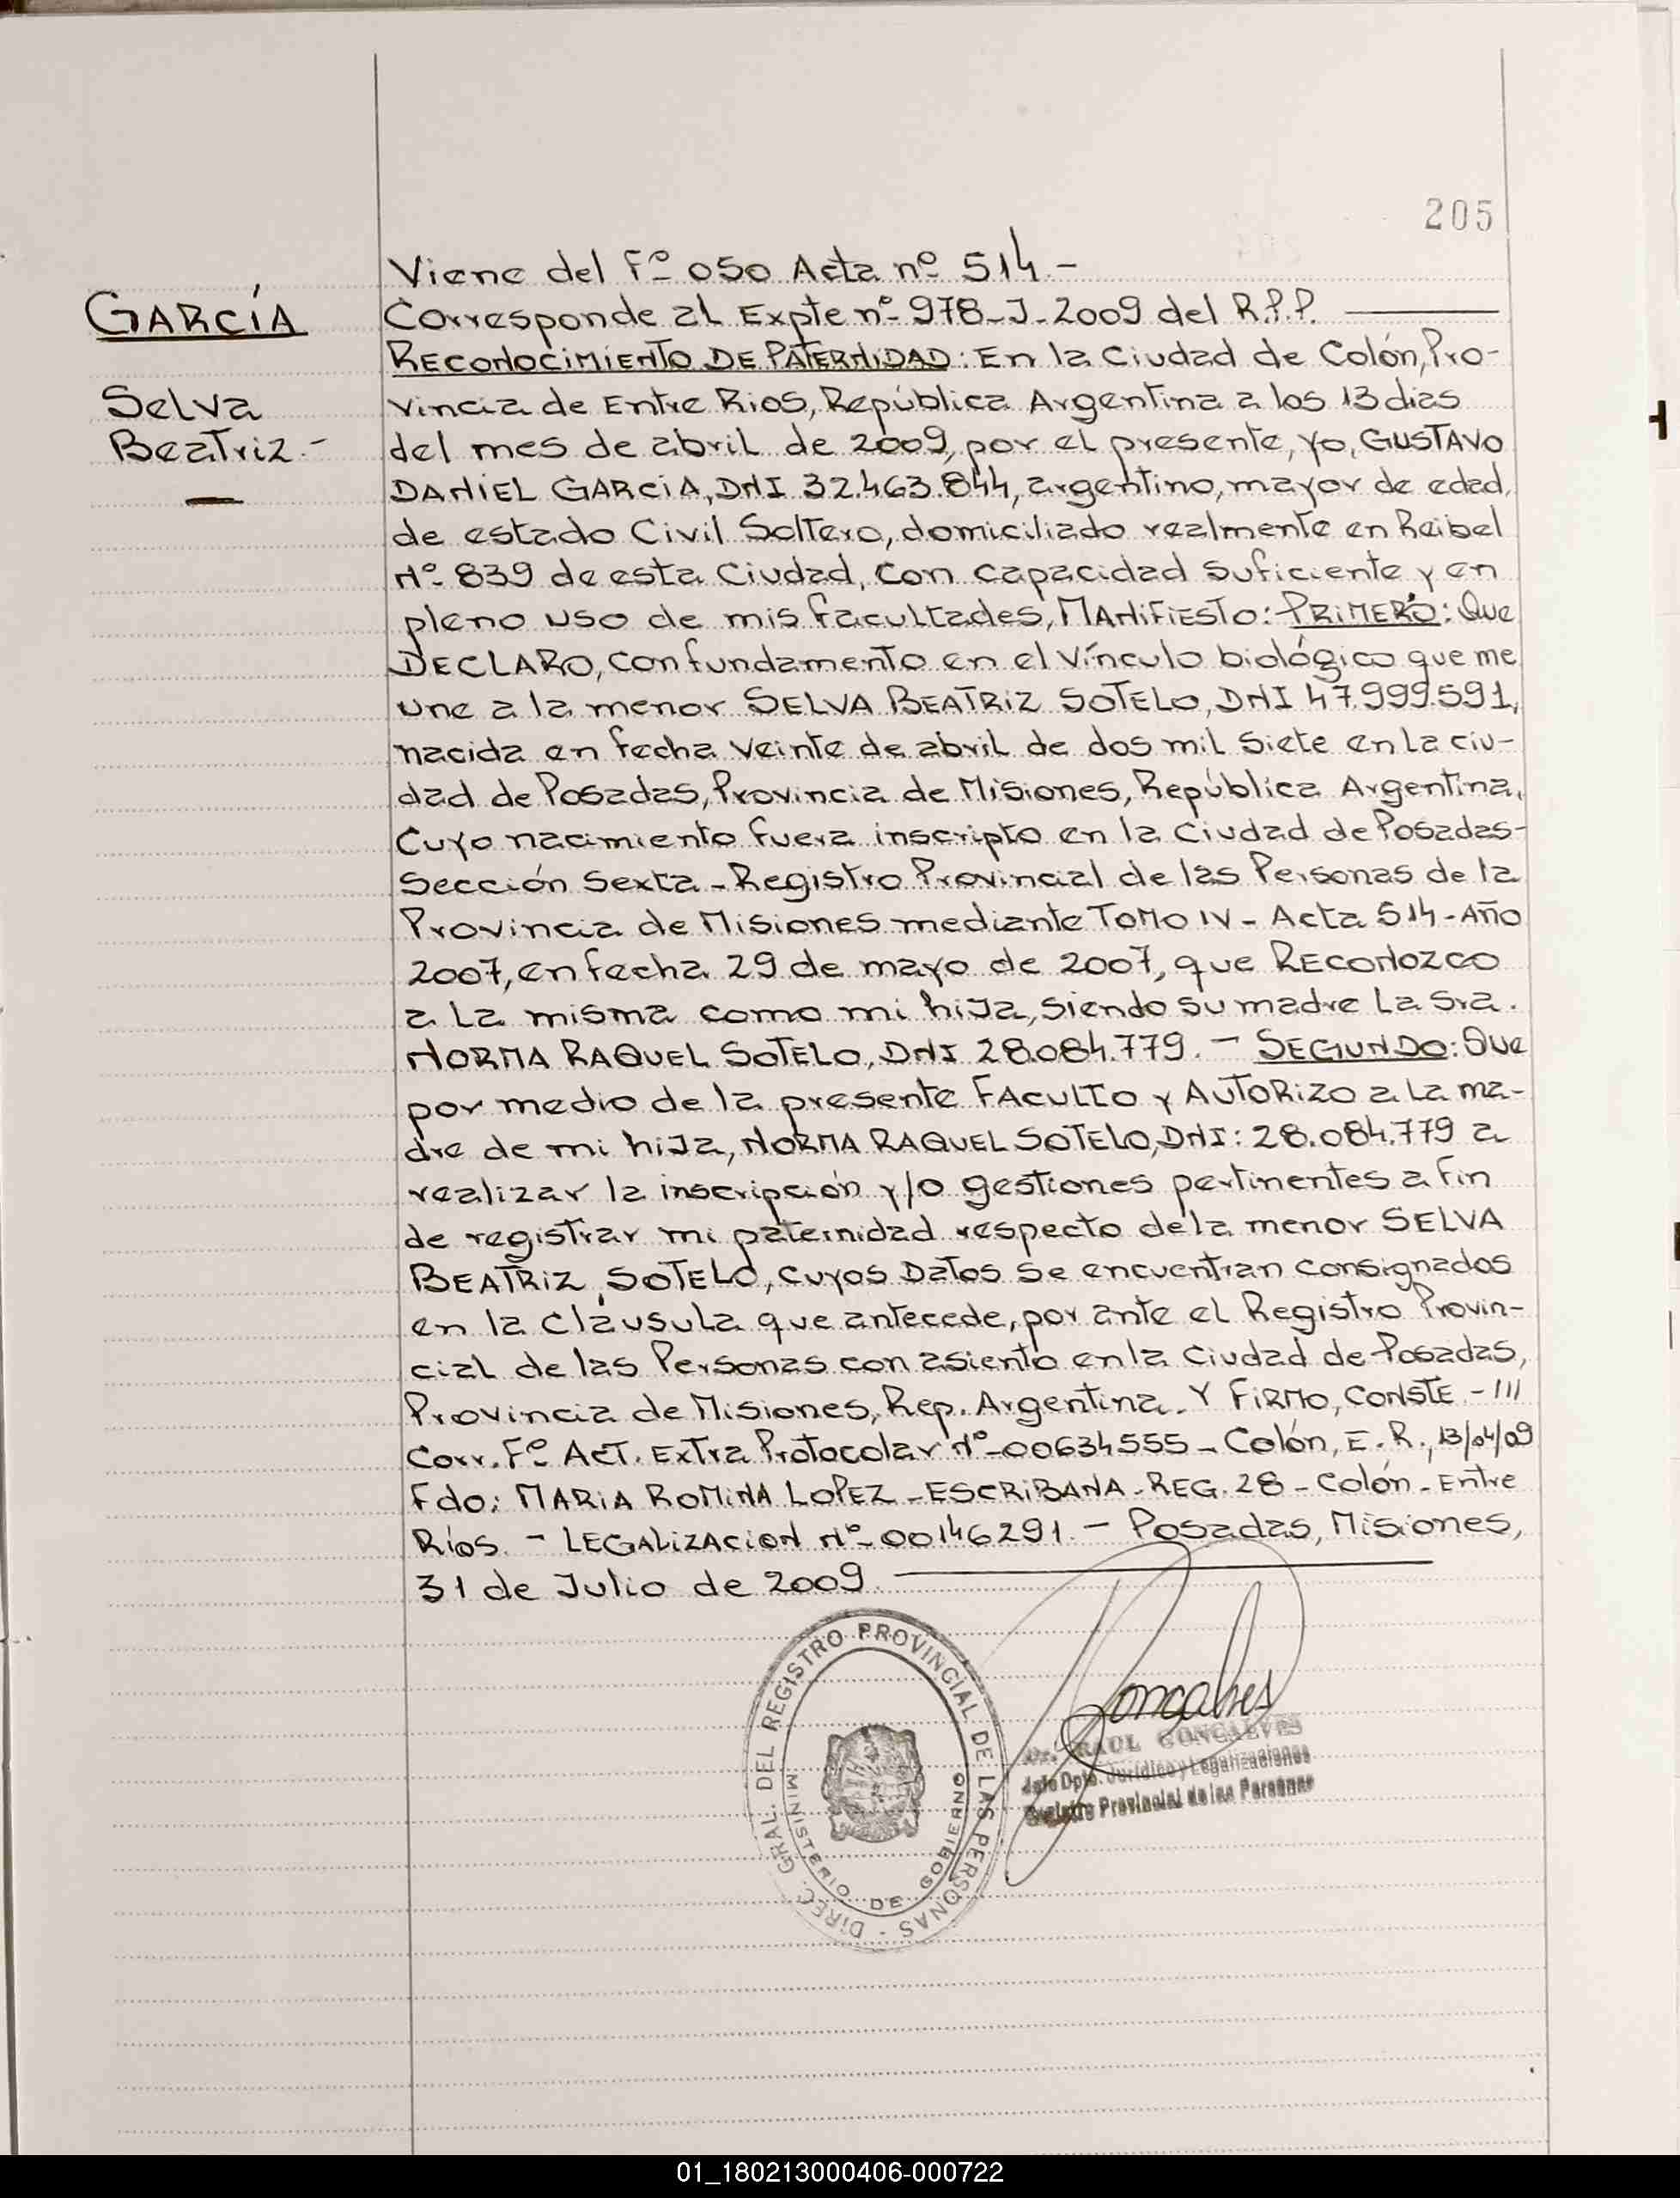 205
Viene del Fº 050 Acta nº 514.-
GARCÍA
Corresponde al Expte nº 978-J-2009 del R.P.P.
RECONOCIMIENTO DE PATERNIDAD: En la Ciudad de Colón, Pro-
Selva
vincia de Entre Rios, República Argentina a los 13 dias
Beatriz.-
del mes de abril de 2009, por el presente, yo, GUSTAVO
DANIEL GARCIA, DNI 32.463.844, argentino, mayor de edad,
de estado Civil Soltero, domiciliado realmente en Reibel
Nº 839 de esta Ciudad, con capacidad suficiente y en
pleno uso de mis facultades, MANIFIESTO: PRIMERO: Que
DECLARO, con fundamento en el vínculo biológico que me
une a la menor SELVA BEATRIZ SOTELO, DNI 47.999.591,
nacida en fecha veinte de abril de dos mil siete en la ciu-
dad de Posadas, Provincia de Misiones, República Argentina,
Cuyo nacimiento fuera inscripto en la Ciudad de Posadas-
Sección Sexta - Registro Provincial de las Personas de la
Provincia de Misiones mediante TOMO IV - Acta 514 - Año
2007, en fecha 29 de mayo de 2007, que RECONOZCO
a la misma como mi hija, siendo su madre la Sra.
NORMA RAQUEL SOTELO, DNI 28.084.779. - SEGUNDO: Que
por medio de la presente FACULTO y AUTORIZO a la ma-
dre de mi hija, NORMA RAQUEL SOTELO, DNI: 28.084.779 a
realizar la inscripción y/o gestiones pertinentes a fin
de registrar mi paternidad respecto de la menor SELVA
BEATRIZ SOTELO, cuyos Datos se encuentran consignados
en la cláusula que antecede, por ante el Registro Provin-
cial de las Personas con asiento en la Ciudad de Posadas,
Provincia de Misiones, Rep. Argentina. Y FIRMO, CONSTE.-///
Corr. Fº ACT. Extra Protocolar Nº 00634555 - Colón, E.R., 13/04/09
Fdo: MARIA ROMINA LOPEZ - ESCRIBANA - REG. 28 - Colón - Entre
Ríos. - LEGALIZACION Nº 00146291. - Posadas, Misiones,
31 de Julio de 2009.
DIREC. GRAL. DEL REGISTRO PROVINCIAL DE LAS PERSONAS -
MINISTERIO DE GOBIERNO
Goncalves
Dr. RAUL GONCALVES
Jefe Dpto. Jurídico y Legalizaciones
Registro Provincial de las Personas
01_180213000406-000722